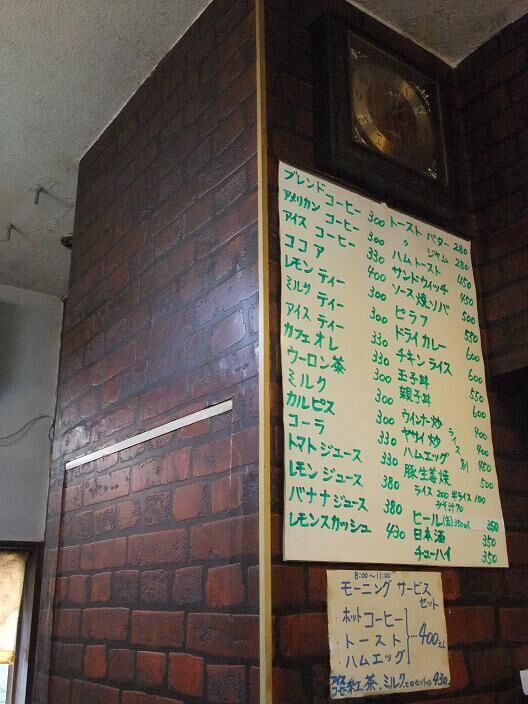 ブレンドコーヒー 300
アメリカン コーヒー 300
アイス コーヒー 330
ココア 400
レモン ティー 300
ミルク ティー 300
アイス ティー 330
カフェオレ 330
ウーロン茶 300
ミルク 300
カルピス 330
コーラ 330
トマトジュース 380
レモン ジュース
バナナジュース 380
レモンスカッシュ 430
トースト バター 280
〃 ジャム 280
ハムトースト 450
サンドウィッチ 450
ソース焼ソバ 500
ピラフ 550
ドライカレー 600
チキンライス 600
玉子丼 550
親子丼 600
ウインナー炒 400
ヤサイ炒 400
ハムエッグ 450
豚生姜焼 500
ライス別
ライス 200 半ライス 100
みそ汁 70
ビール(缶)350ml 350
日本酒 350
チューハイ 350
8:00〜11:00
モーニング サービス
セット
ホットコーヒー
トースト
ハムエッグ
400
アイスコーヒー 紅茶、ミルクとのセットは430